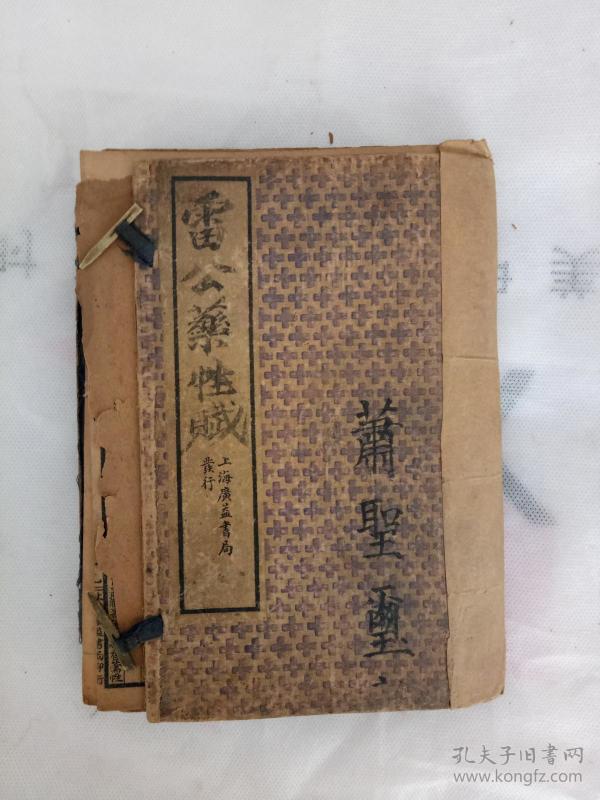 雷公藥性賦
上海廣益書局
發行
蕭聖璽
孔夫子旧书网
www.kongfz.com